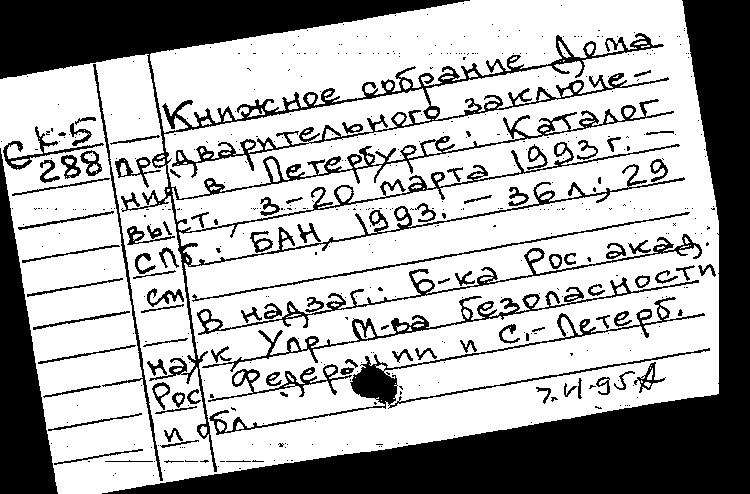 Книжное собрание Дома
Ск-5
288
предварительного заключе-
ния в Петербурге: Каталог
выст., 3-20 марта 1993 г. —
СПб.: БАН, 1993. — 36 л.; 29
см.
В надзаг.: Б-ка Рос. акад.
наук, Упр. М-ва безопасности
Рос. Федерации и С.-Петерб.
и обл.